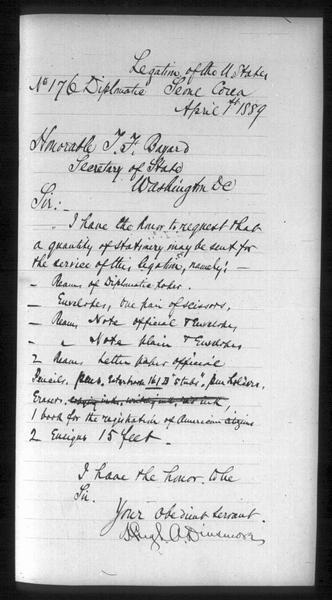 Legation of the U. States
No 176 Diplomatic Seoul Corea
April 1st 1889
Honorable T. F. Bayard
Secretary of State
Washington DC
Sir:-
I have the honor to request that
a quantity of stationery may be sent for
the service of this legation, namely:-
- Reams of Diplomatic Paper.
- Envelopes, one pair of scissors,
- Reams Note official & Envelopes
- " Note plain & Envelopes
2 Reams Letter paper official
Pencils, pens, Esterbrook 161, D "stubs", pen holders,
Erasers, copying inks, writing inks, red ink,
1 book for the registration of American citizens
2 Ensigns 15 feet.
I have the honor to be
Sir.
Your obedient servant.
Hugh A. Dinsmore